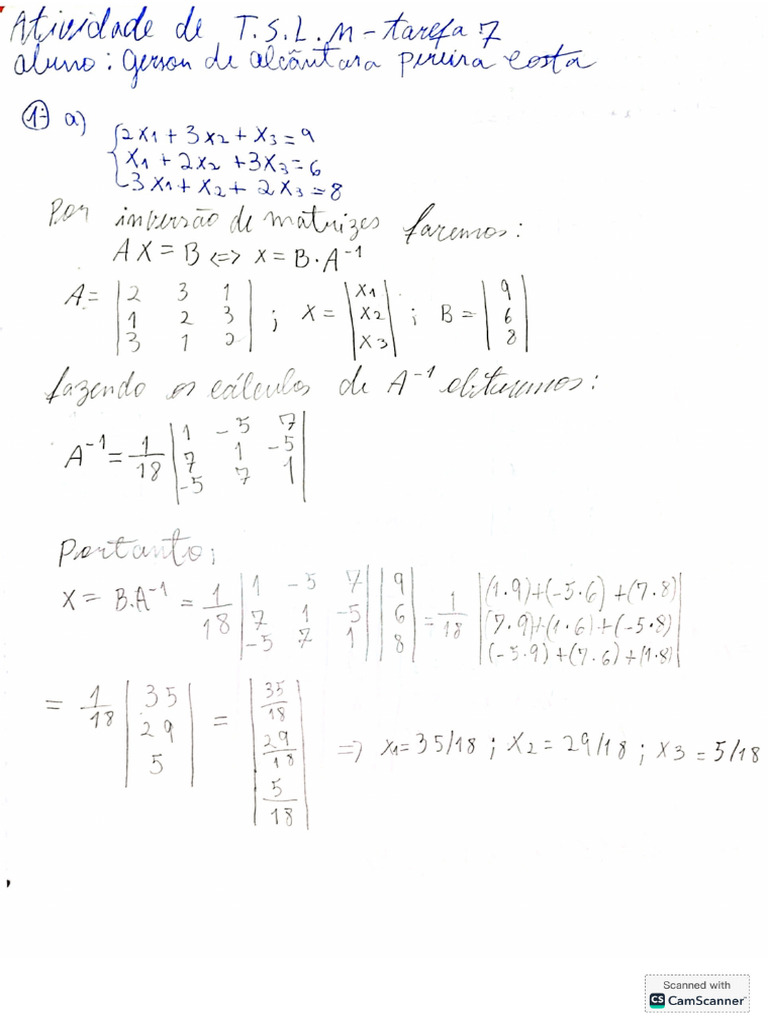 Atividade de T.S.L.M - tarefa 7
aluno: Gerson de alcântara pereira costa
1- a) {2x1 + 3x2 + x3 = 9
x1 + 2x2 + 3x3 = 6
3x1 + x2 + 2x3 = 8
Por inversão de matrizes faremos:
AX = B <=> X = B·A^-1
A = |2 3 1| ; X = |x1| ; B = |9|
|1 2 3| |x2| |6|
|3 1 2| |x3| |8|
fazendo os cálculos de A^-1 obteremos:
A^-1 = 1/18 |1 -5 7|
|7 1 -5|
|-5 7 1|
Portanto;
X = B.A^-1 = 1/18 |1 -5 7| |9| = 1/18 |(1·9)+(-5·6)+(7·8)|
|7 1 -5| |6| |(7·9)+(1·6)+(-5·8)|
|-5 7 1| |8| |(-5·9)+(7·6)+(1·8)|
= 1/18 |35| = |35/18|
|29| |29/18| => x1=35/18 ; x2=29/18 ; x3=5/18
|5| |5/18|
Scanned with
CS CamScanner